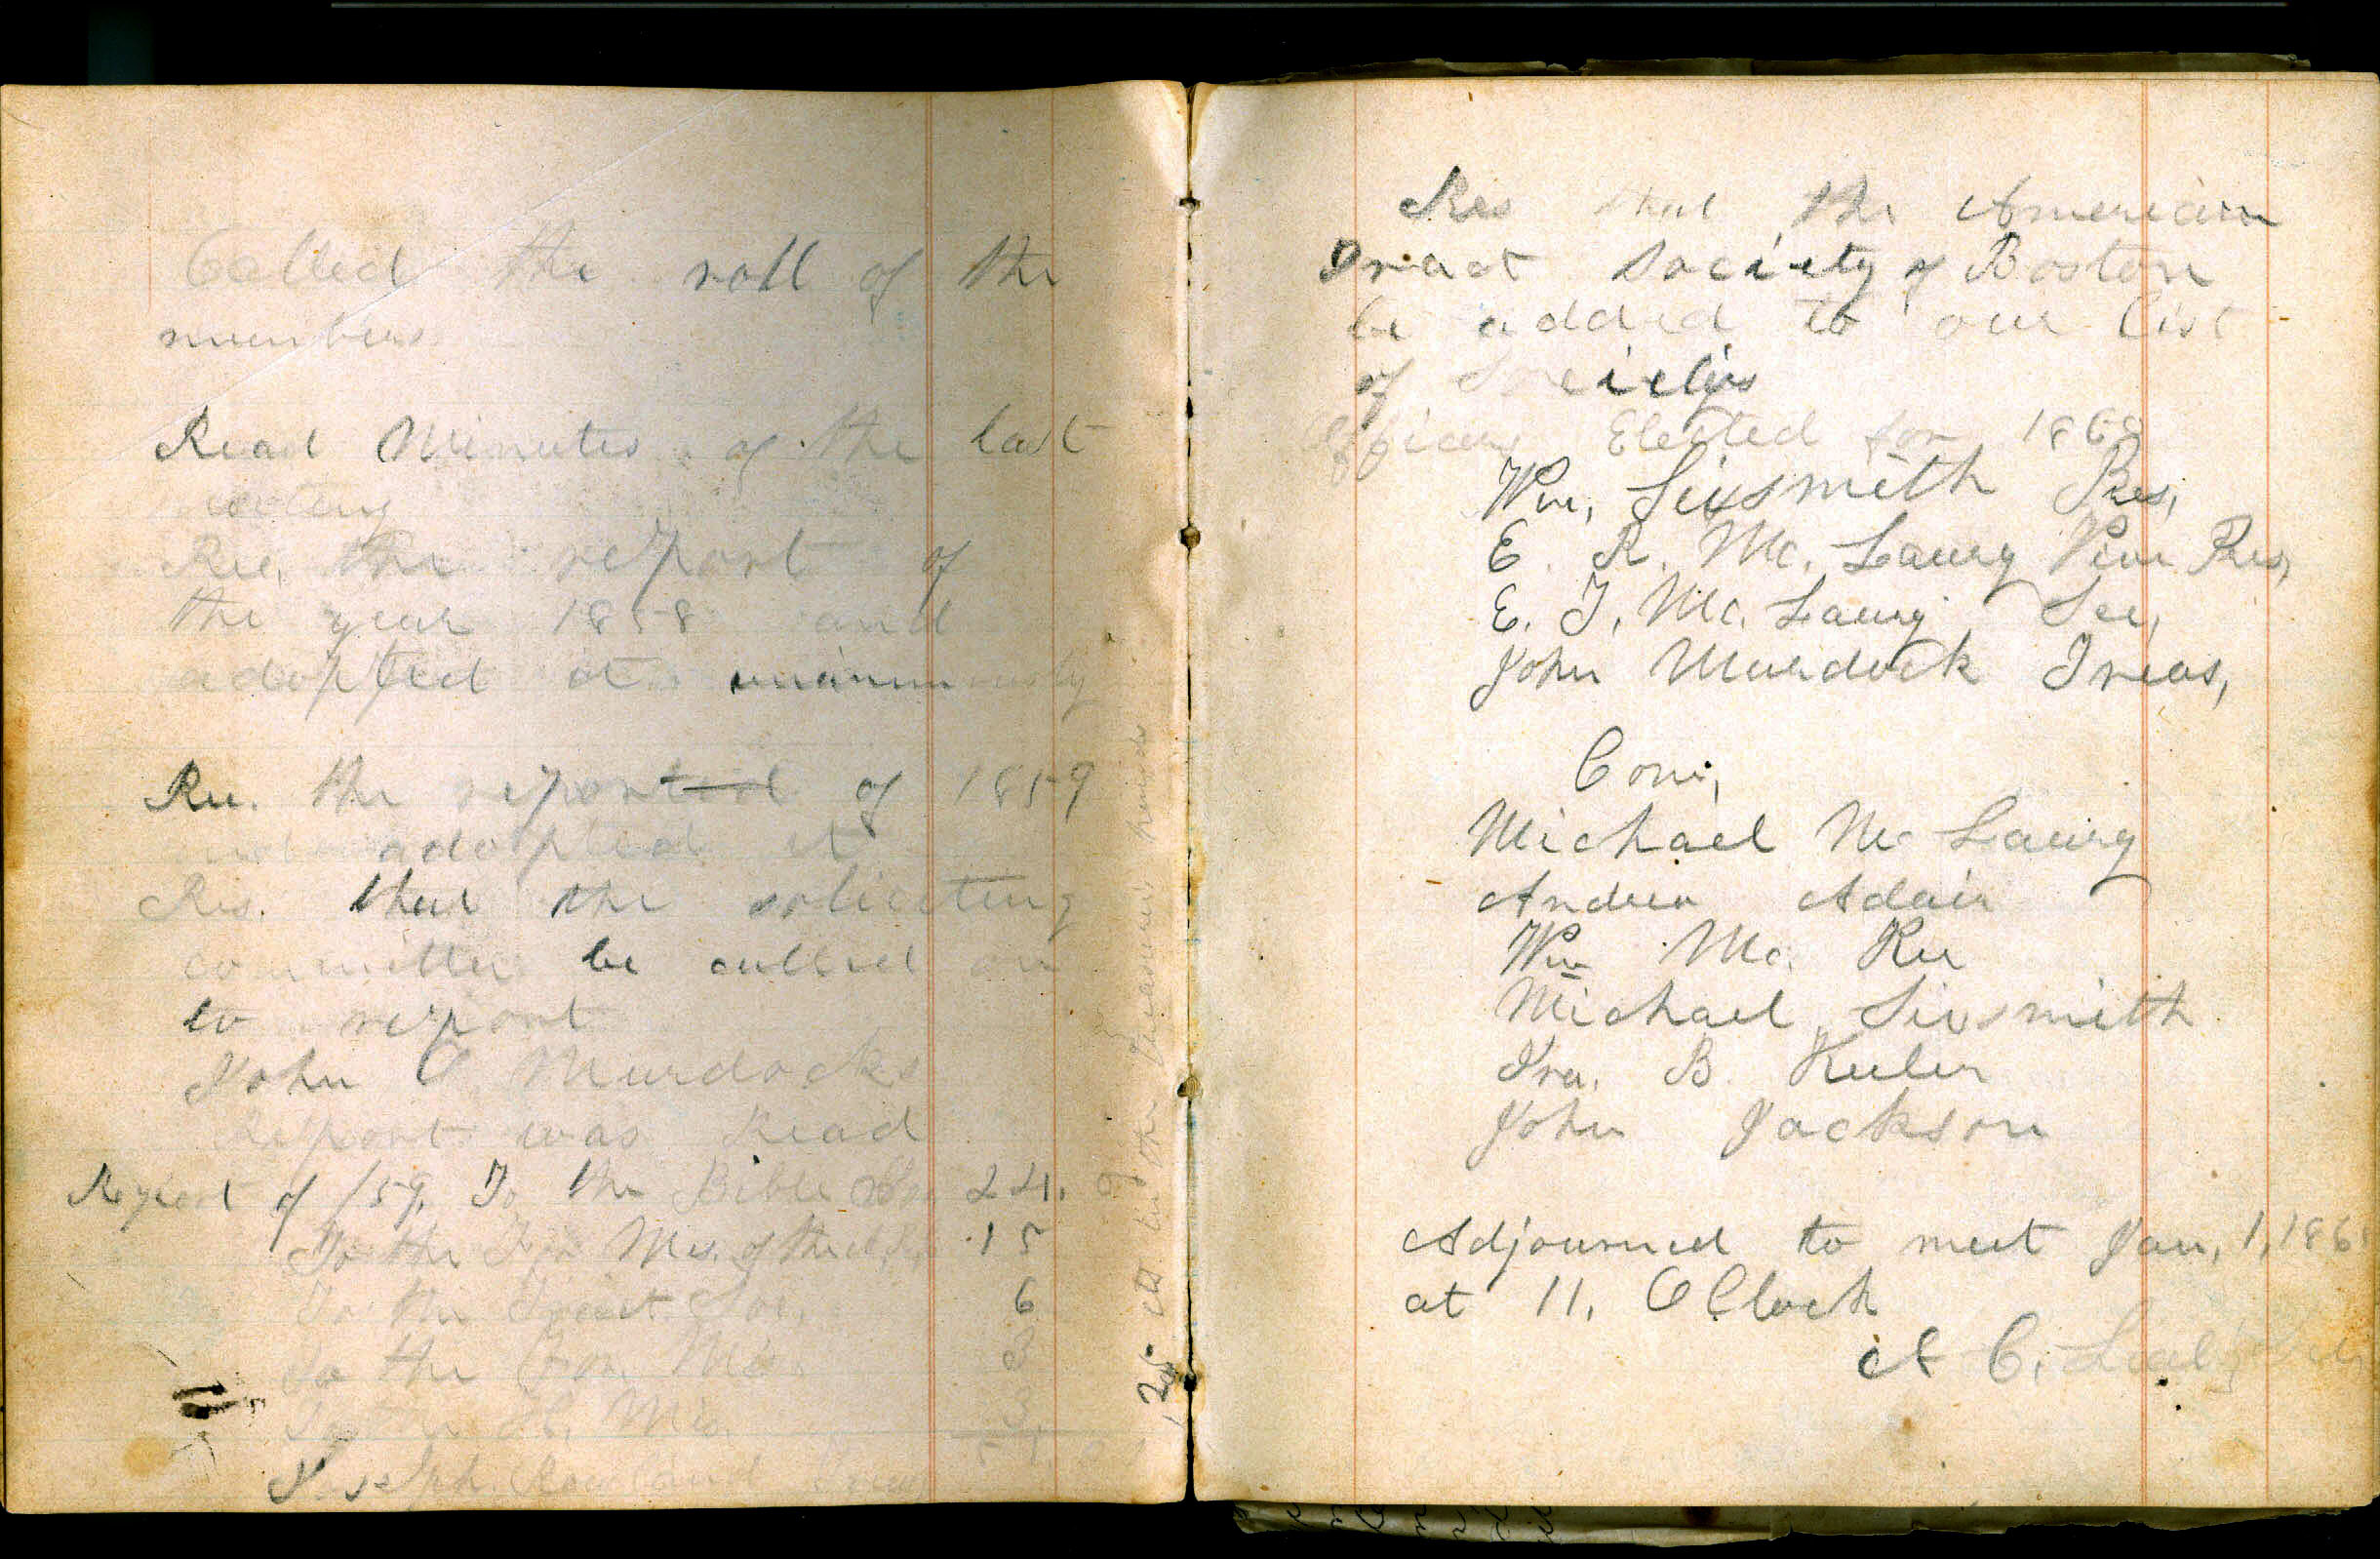 Called the roll of the
members
Read Minutes of the last
meeting
Rec. the report of
the year 1858 and
adopted it unanimously
Rec. the reported of 1859
adopted it
Res. that the soliciting
committee be called on
to report
John Murdocks
Report was Read
Report of /59, To the Bible Soc 24.
To the Mis. of the 15
To the Tract Soc. 6
To the Mis. 3
To the H. Mis. 3
Joseph Rowland
25 cts. in the Treasurer hands
Res that the American
Tract Society of Boston
be added to our list
of Societys
Officers Elected for 1860
Wm, Sixsmith Pres,
E. R. Mc. Laury Vice Pres,
E. T. Mc. Laury Sec,
John Murdock Treas,
Com,
Michael Mc Laury
Andrew Adair
Wm Mc. Kee
Michael Sixsmith
Ira. B. Keeler
John Jackson
Adjourned to meet Jan, 1, 186
at 11, O Clock
A C.